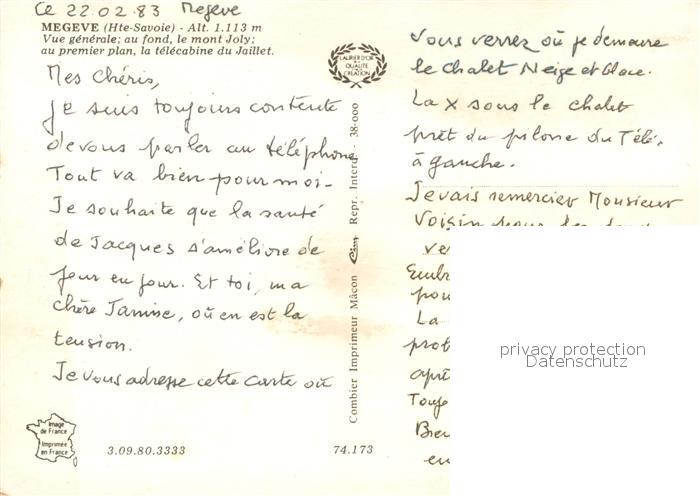 Ce 22.02.83 Megeve
MEGEVE (Hte-Savoie) - Alt. 1.113 m
Vue générale; au fond, le mont Joly;
au premier plan, la télécabine du Jaillet.
Mes Chéris,
Je suis toujours contente
de vous parler au téléphone
Tout va bien pour moi-
Je souhaite que la santé
de Jacques s'améliore de
jour en jour. Et toi, ma
chère Janine, où en est la
tension.
Je vous adresse cette carte où
Image
de France
Imprimée
en France
3.09.80.3333
74.173
LAURIER D'OR
DE LA
QUALITÉ
CRÉATION
Combier Imprimeur Mâcon Cim Repr. Interd. - 38-000
Vous verrez où je demeure
le Chalet Neige et Glace.
La X sous le chalet
prêt du pilone du Télé.
à gauche.
Je vais remercier Monsieur
Voisin pour les
ve
Embr
pou
La
prob
aprè
Toujo
Bien
en
privacy protection
Datenschutz